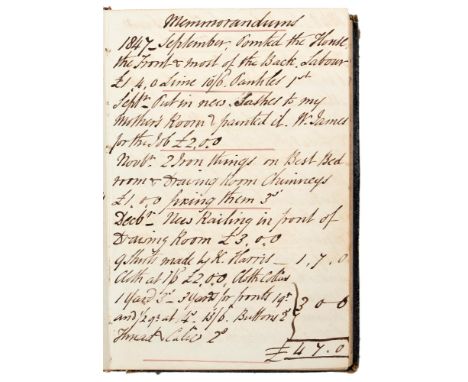 Memmorandums
1847 - September. Pointed the House,
the Front & most of the Back. Labour
£1, 4, 0 Lime 10/6. Pantiles 1st
Septr. Put in new Sashes to my
Mother's Room & painted it. Wm. James
for the Job £2, 0, 0
Novbr. 2 Iron things on Best Bed
room & Drawing Room Chimneys
£1, 0, 0 fixing them 3s
Decbr. New Railing in front of
Drawing Room £3, 0, 0
9 Shirts made by K. Harris - 1, 7, 0
Cloth at 1/6 £2, 0, 0, Cloth
1 Yard for fronts
and at Buttons 2s 3 0 0
Thread & Calico 2s
£4 7, 0